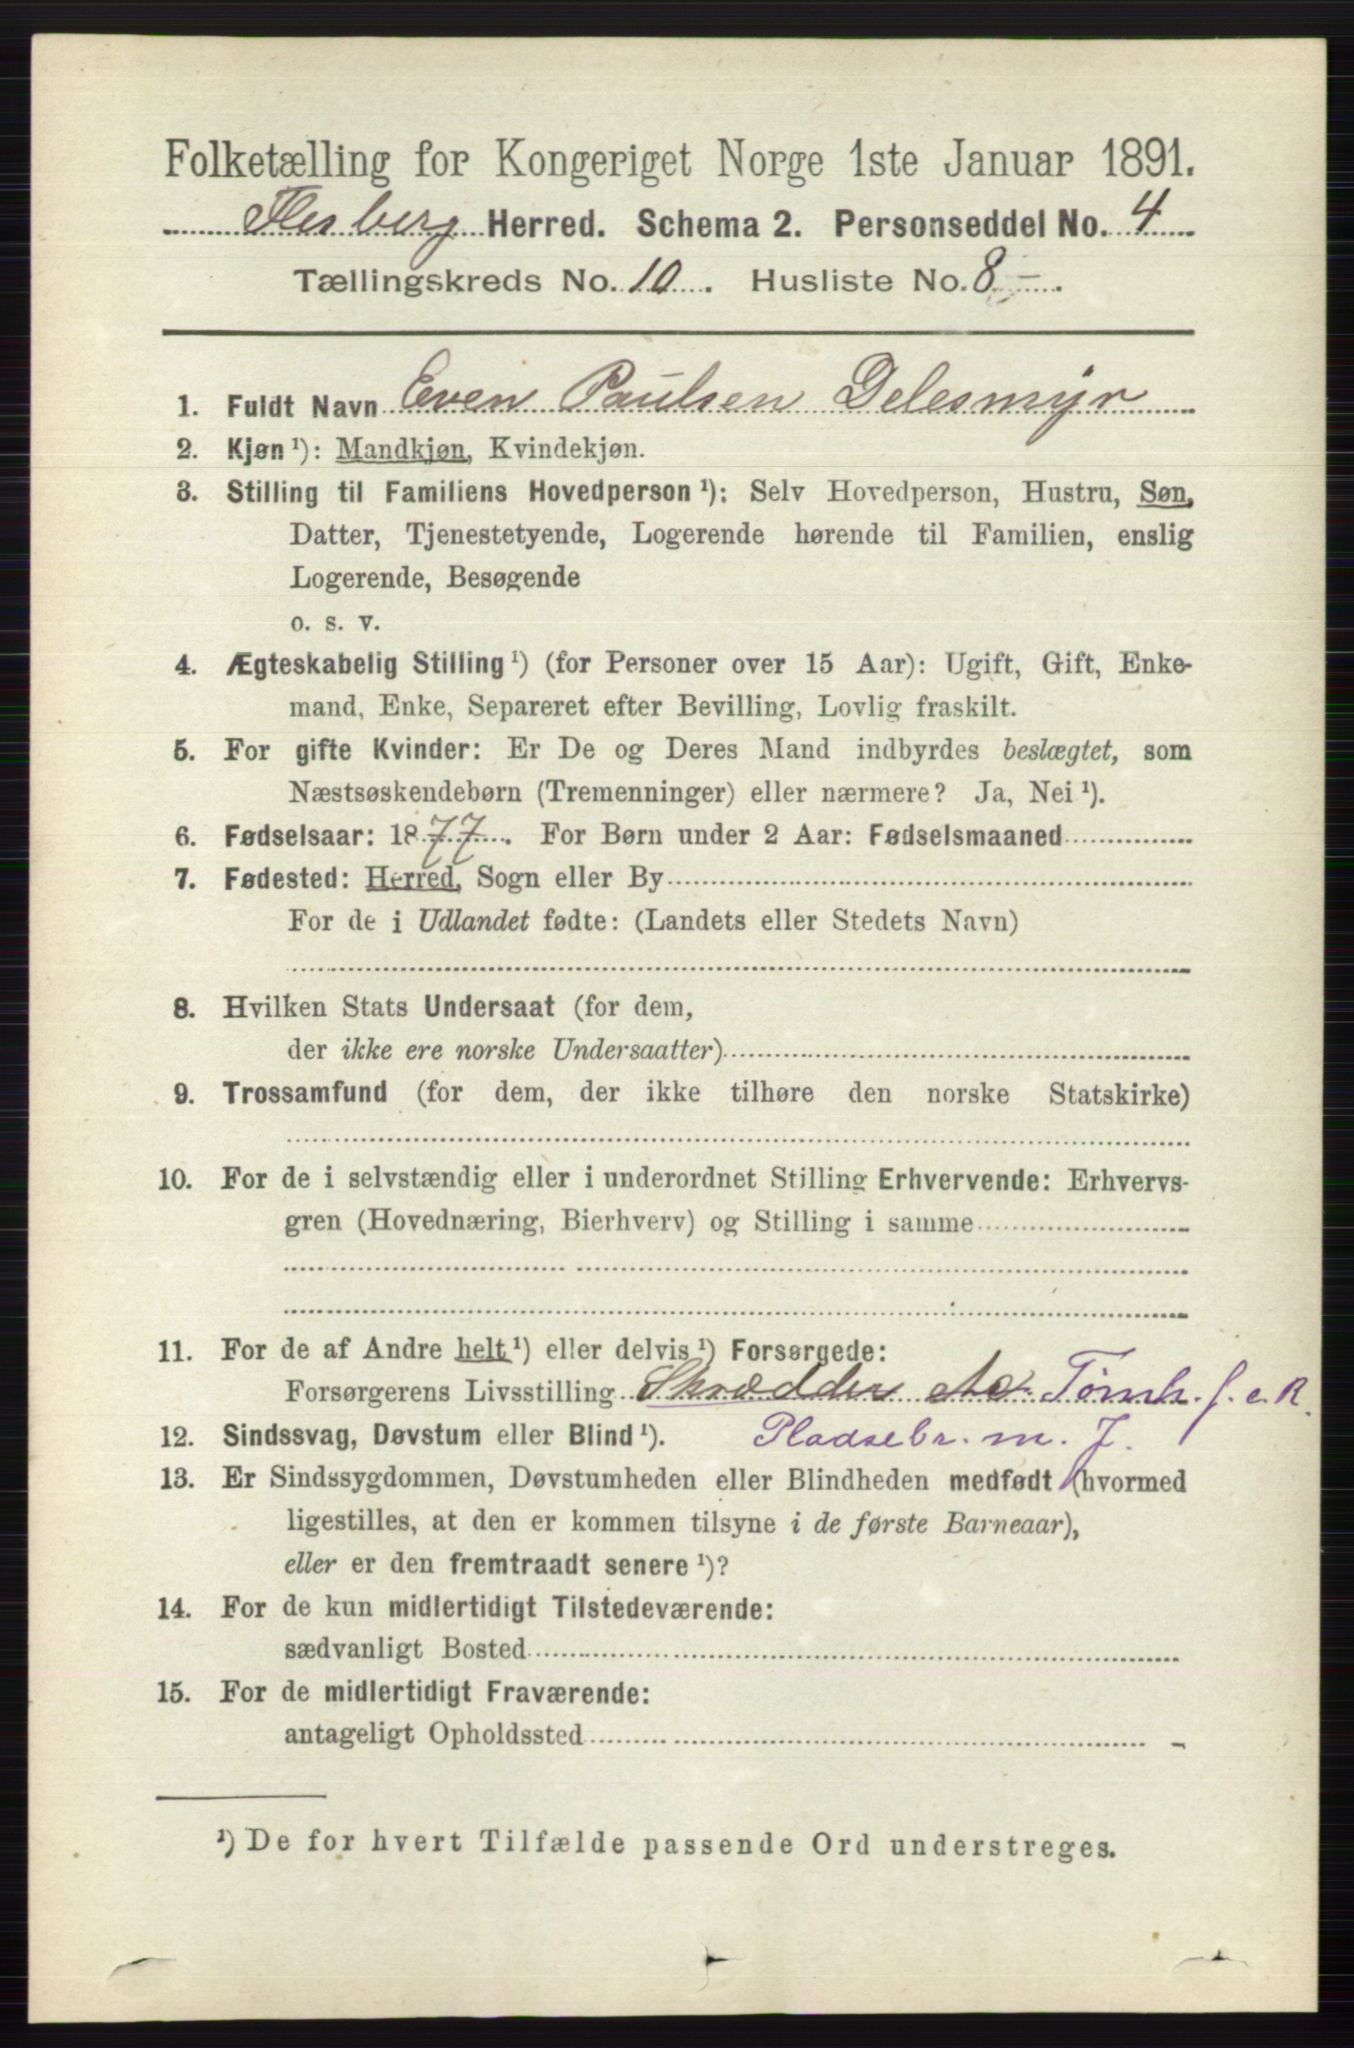 Folketælling for Kongeriget Norge 1ste Januar 1891.
Flesberg Herred. Schema 2. Personseddel No. 4
Tællingskreds No. 10. Husliste No. 8
1. Fuldt Navn Even Paulsen Delesmyr
2. Kjøn ¹): Mandkjøn, Kvindekjøn.
3. Stilling til Familiens Hovedperson ¹): Selv Hovedperson, Hustru, Søn,
Datter, Tjenestetyende, Logerende hørende til Familien, enslig
Logerende, Besøgende
o. s. v.
4. Ægteskabelig Stilling ¹) (for Personer over 15 Aar): Ugift, Gift, Enke-
mand, Enke, Separeret efter Bevilling, Lovlig fraskilt.
5. For gifte Kvinder: Er De og Deres Mand indbyrdes beslægtet, som
Næstsøskendebørn (Tremenninger) eller nærmere? Ja, Nei ¹).
6. Fødselsaar: 1877. For Børn under 2 Aar: Fødselsmaaned
7. Fødested: Herred, Sogn eller By
For de i Udlandet fødte: (Landets eller Stedets Navn)
8. Hvilken Stats Undersaat (for dem,
der ikke ere norske Undersaatter)
9. Trossamfund (for dem, der ikke tilhøre den norske Statskirke)
10. For de i selvstændig eller i underordnet Stilling Erhvervende: Erhvervs-
gren (Hovednæring, Bierhverv) og Stilling i samme
11. For de af Andre helt ¹) eller delvis ¹) Forsørgede:
Forsørgerens Livsstilling Skrædder Tømh. f. e. R.
12. Sindssvag, Døvstum eller Blind ¹). Pladsebr. m. J.
13. Er Sindssygdommen, Døvstumheden eller Blindheden medfødt (hvormed
ligestilles, at den er kommen tilsyne i de første Barneaar),
eller er den fremtraadt senere ¹)?
14. For de kun midlertidigt Tilstedeværende:
sædvanligt Bosted
15. For de midlertidigt Fraværende:
antageligt Opholdssted
¹) De for hvert Tilfælde passende Ord understreges.